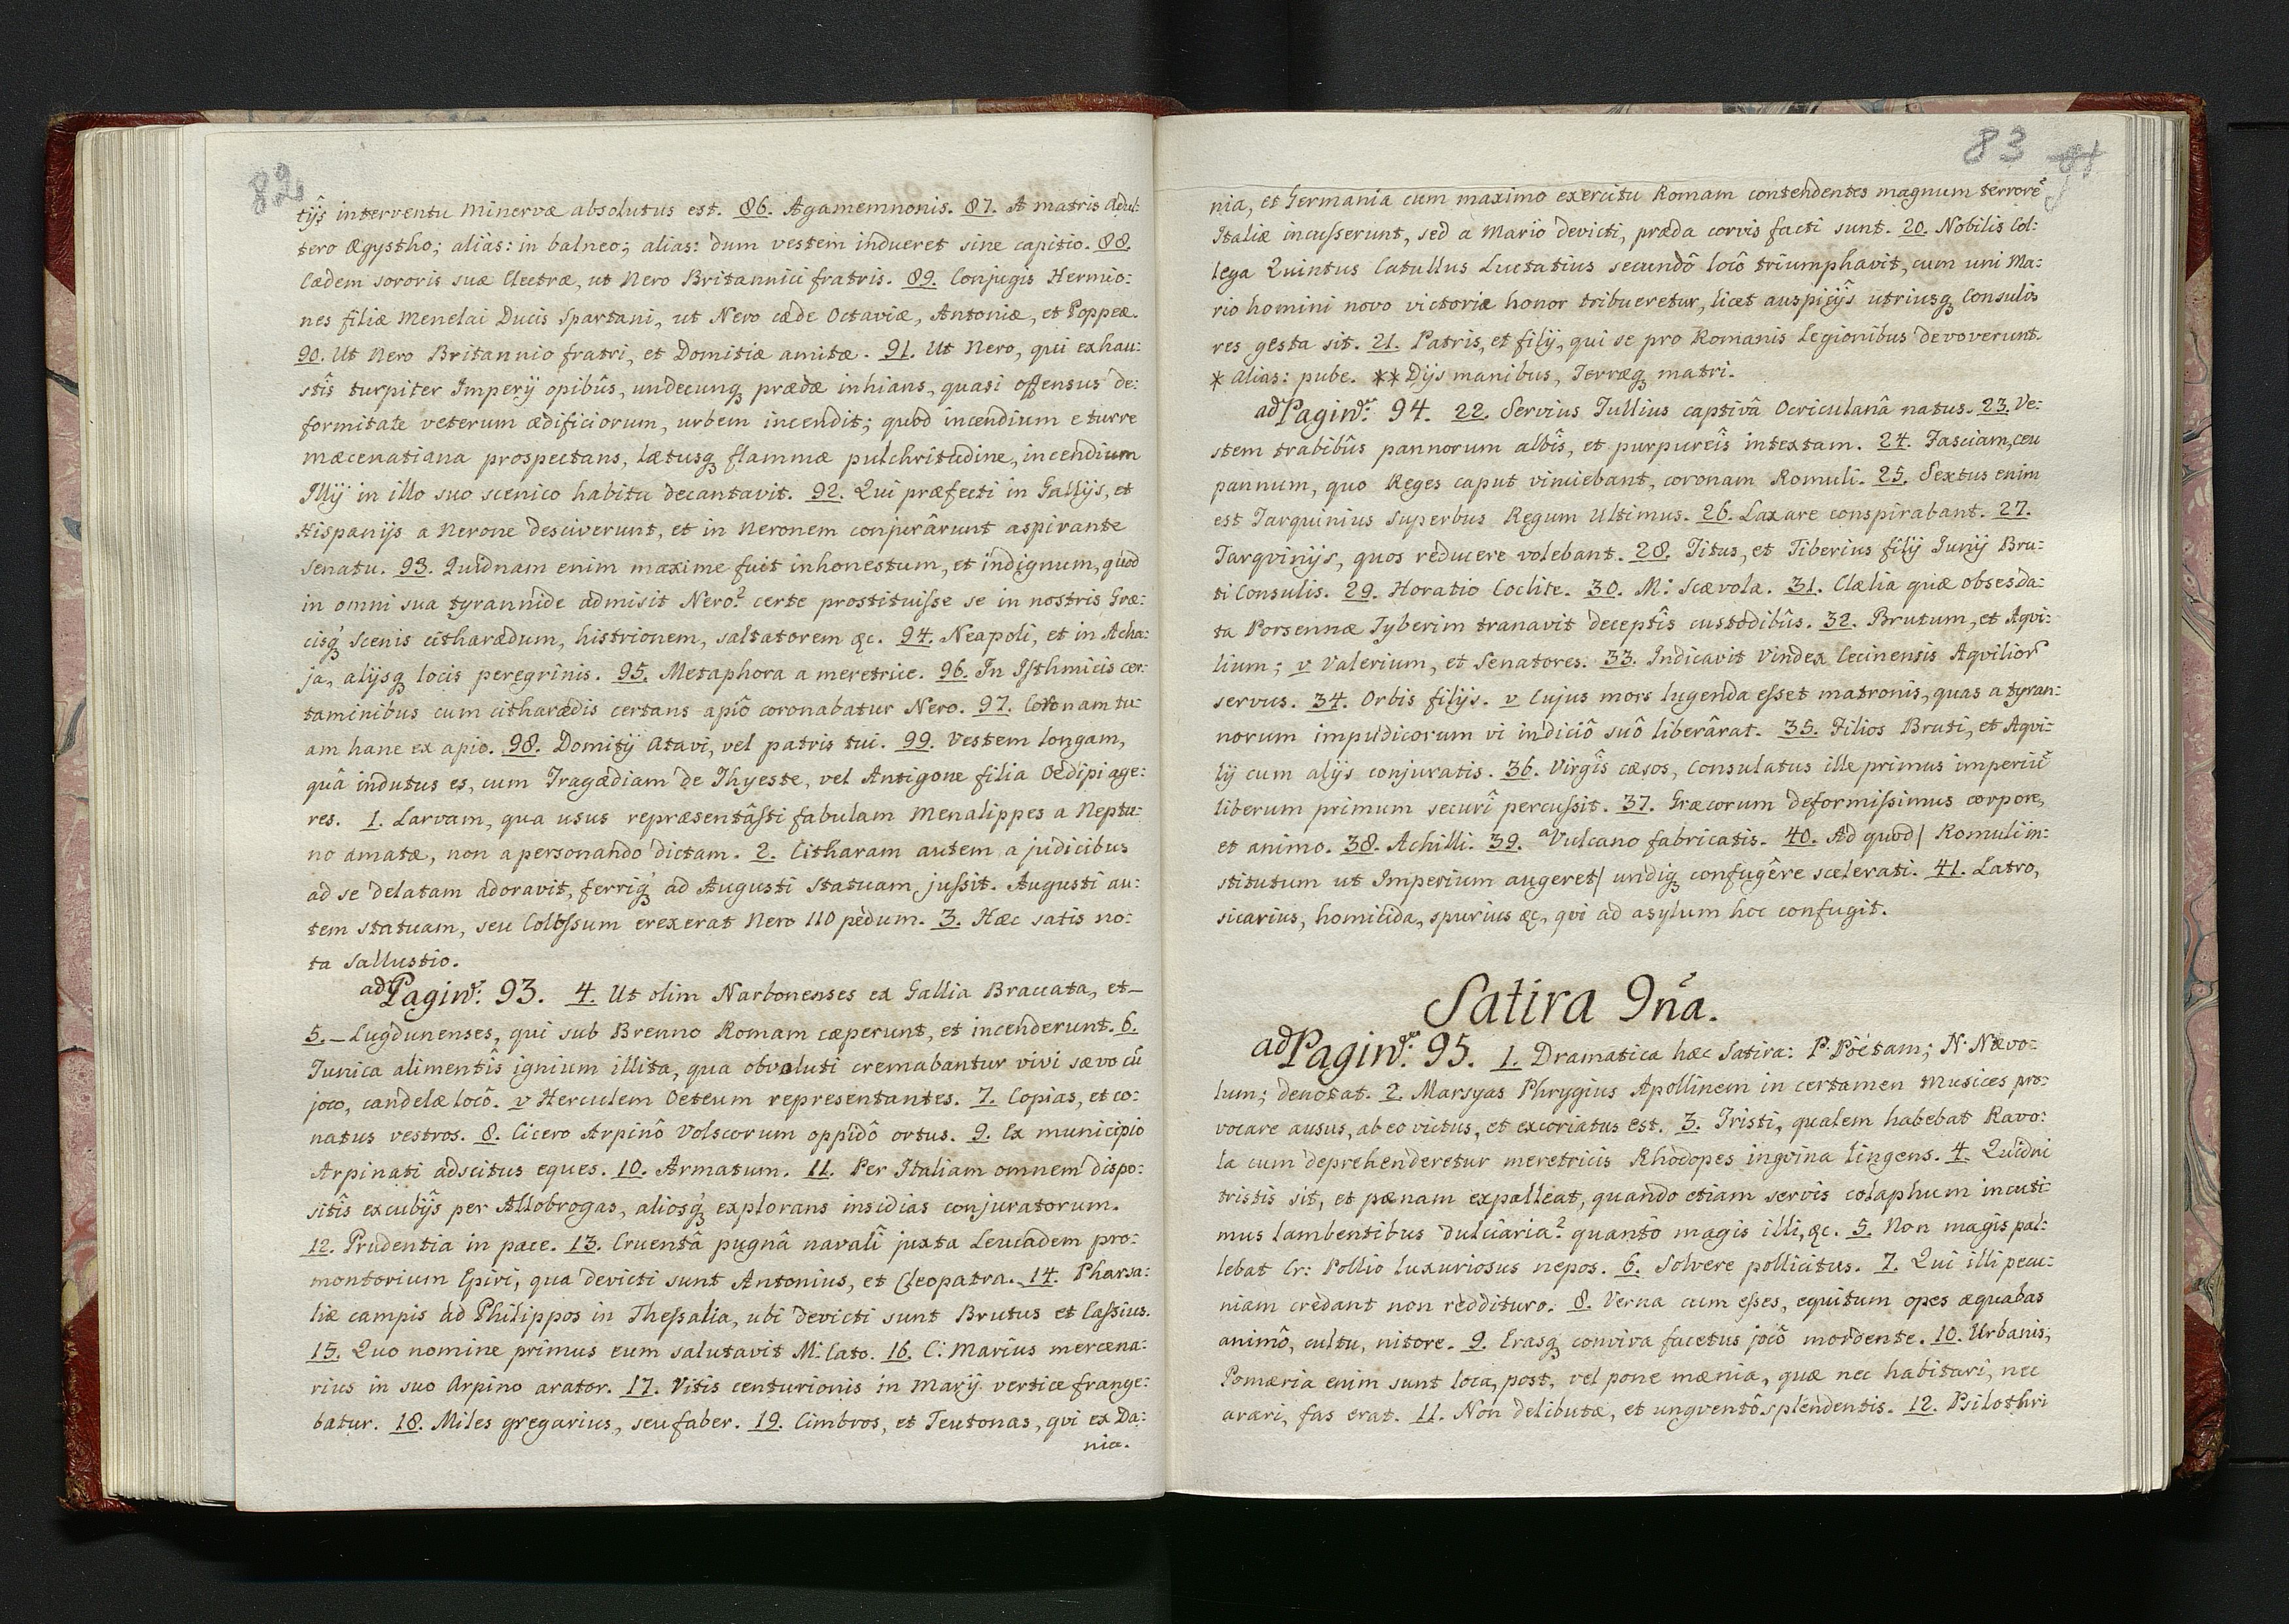 82
tijs interventu Minervæ absolutus est. 86. Agamemnonis. 87. A matris adul:
tero Ægystho; alias: in balneo; alias: dum vestem indueret sine capitio. 88.
Cædem sororis suæ Electræ, ut Nero Britannici fratris. 89. Conjugis Hermio:
nes filiæ Menelai Ducis Spartani, ut Nero cæde Octaviæ, Antoniæ, et Poppeæ.
90. Ut Nero Britannio fratri, et Domitiæ amitæ. 91. Ut Nero, qui exhau:
stîs turpiter Imperÿ opibûs, undecunqȝ prædæ inhians, quasi offensus de:
formitate veterum ædificiorum, urbem incendit; quod incendium e turre
mæcenatiana prospectans, lætusqȝ flammæ pulchritudine, incendium
Illÿ in illo suo scenico habitu decantavit. 92. Qui præfecti in Gallijs, et
Hispanijs a Nerone desciverunt, et in Neronem conjurârunt aspirante
Senatu. 93. Quidnam enim maxime fuit inhonestum, et indignum, quod
in omni sua tyrannide admisit Nero? certe prostituisse se in nostris Græ:
cisqȝ scenis citharædum, histrionem, saltatorem &c. 94. Neapoli, et in Acha:
ja, alijsqȝ locis peregrinis. 95. Metaphora a meretrice. 96. In Isthmicis cer:
taminibus cum citharædis certans apiô coronabatur Nero. 97. Coronam tu:
am hanc ex apio. 98. Domitÿ atavi, vel patris tui. 99. Vestem longam,
quâ indutus es, cum Tragædiam de Thyeste, vel Antigone filia Oedipi age:
res. 1. Larvam, qua usus repræsentâsti fabulam Menalippes a Neptu:
no amatæ, non a personando dictam. 2. Citharam autem a judicibus
ad se delatam adoravit, ferriqȝ ad Augusti statuam jussit. Augusti au:
tem statuam, seu Colossum erexerat Nero 110 pedum. 3. Hæc satis no:
ta Sallustio.
ad Pagin̄: 93. 4. Ut olim Narbonenses ex Gallia Braccata, et_
5._Lugdunenses, qui sub Brenno Romam cæperunt, et incenderunt. 6.
Tunica alimentîs ignium illita, qua obvoluti cremabantur vivi sævo cū
joco, candelæ locô. v Herculem Oeteum representantes. 7. Copias, et co:
natus vestros. 8. Cicero Arpinô Volscorum oppidô ortus. 9. Ex municipio
Arpinati adscitus eques. 10. Armatum. 11. Per Italiam omnem dispo:
sitîs excubijs per Allobrogas, aliosqȝ explorans insidias conjuratorum.
12. Prudentia in pace. 13. Cruentâ pugnâ navalî juxta Leucadem pro:
montorium Epiri, qua devicti sunt Antonius, et Cleopatra. 14. Pharsa:
liæ campis ad Philippos in Thessalia, ubi devicti sunt Brutus et Cassius.
15. Quo nomine primus eum salutavit M: Cato. 16. C: Marius mercena:
rius in suo Arpino arator. 17. Vitis centurionis in Marÿ vertice frange:
batur. 18. Miles gregarius, seu faber. 19. Cimbros, et Teutonas, qvi ex Da:
nia.
83
nia, et Germania cum maximo exercitu Romam contendentes magnum terrorē
Italiæ incusserunt, sed a Mario devicti, præda corvis facti sunt. 20. Nobilis Col:
lega Quintus Catullus Luctatius secundô locô triumphavit, cum uni Ma:
rio homini novo victoriæ honor tribueretur, licet auspicijs utriusqȝ Consulis
res gesta sit. 21. Patris, et filij, qui se pro Romanis Legionibus devoverunt.
* Alias: pube. ** Dijs manibus, Terræqȝ matri.
ad Pagin̄: 94. 22. Servius Tullius captivâ Ocriculanâ natus. 23. Ve:
stem trabibûs pannorum albîs, et purpureîs intextam. 24. Fasciam, ceu
pannum, quo Reges caput vinciebant, coronam Romuli. 25. Sextus enim
est Tarquinius Superbus Regum Ultimus. 26. Laxare conspirabant. 27.
Tarqvinijs, quos reducere volebant. 28. Titus, et Tiberius filij Junij Bru:
ti Consulis. 29. Horatio Coclite. 30. M: Scævola. 31. Clælia quæ obses da:
ta Porsennæ Tyberim tranavit deceptîs custodibûs. 32. Brutum, et Aqvi:
lium; v Valerium, et Senatores. 33. Indicavit Vindex Cecinensis Aqvilior̄
servus. 34. Orbis filijs. v Cujus mors lugenda esset matronis, quas a tyran:
norum impudicorum vi indiciô suô liberârat. 35. Filios Bruti, et Aqvi:
lij cum alijs conjuratis. 36. Virgîs cæsos, Consulatus ille primus imperiū
liberum primum securî percussit. 37. Græcorum deformissimus corpore,
et animo. 38. Achilli. 39. a Vulcano fabricatis. 40. Ad quod/ Romuli in:
stitutum ut Imperium augeret/ undiqȝ confugêre scelerati. 41. Latro,
sicarius, homicida, spurius &c, qvi ad asylum hoc confugit.
Satira 9na.
ad Pagin̄: 95. 1. Dramatica hæc Satira: P. Poëtam; N. Nævo:
lum; denotat. 2. Marsyas Phrygius Apollinem in certamen Musices pro:
vocare ausus, ab eo victus, et excoriatus est. 3. Tristi, qualem habebat Ravo:
la cum deprehenderetur meretricis Rhodopes ingvina lingens. 4. Quidni
tristis sit, et pænam expalleat, quando etiam servis colaphum incuti
mus lambentibus dulciaria? quantô magis illi, &c. 5. Non magis pal:
lebat Cr: Pollio luxuriosus nepos. 6. Solvere pollicitus. 7. Qui illi pecu:
niam credant non reddituro. 8. Verna cum esses, equitum opes æquabas
animô, cultu, nitore. 9. Erasqȝ conviva facetus jocô mordente. 10. Urbanis,
Pomæria enim sunt loca, post, vel pone mænia, quæ nec habitari, nec
arari, fas erat. 11. Non delibutæ, et ungventô splendentis. 12. Psilothri